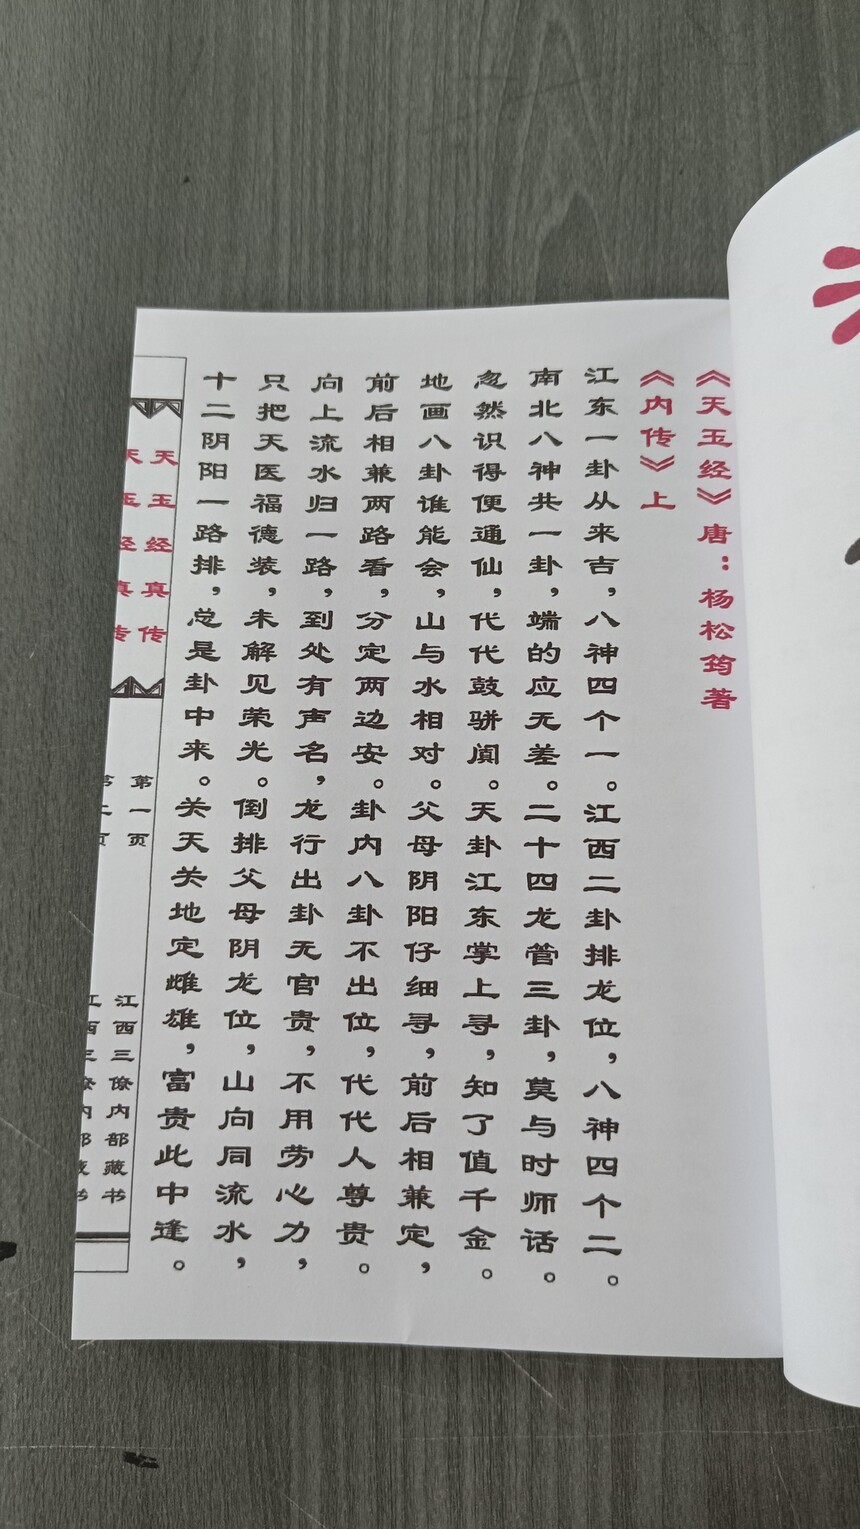 《天玉经》唐：杨松筠著
《内传》上
江东一卦从来吉，八神四个一。江西二卦排龙位，八神四个二。
南北八神共一卦，端的应无差。二十四龙管三卦，莫与时师话。
忽然识得便通仙，代代鼓骈阗。天卦江东掌上寻，知了值千金。
地画八卦谁能会，山与水相对。父母阴阳仔细寻，前后相兼定，
前后相兼两路看，分定两边安。卦内八卦不出位，代代人尊贵。
向上流水归一路，到处有声名，龙行出卦无官贵，不用劳心力，
只把天医福德装，未解见荣光。倒排父母阴龙位，山向同流水，
十二阴阳一路排，总是卦中来。关天关地定雌雄，富贵此中逢。
天玉经真传
第一页
江西三僚内部藏书
天玉经真传
第二页